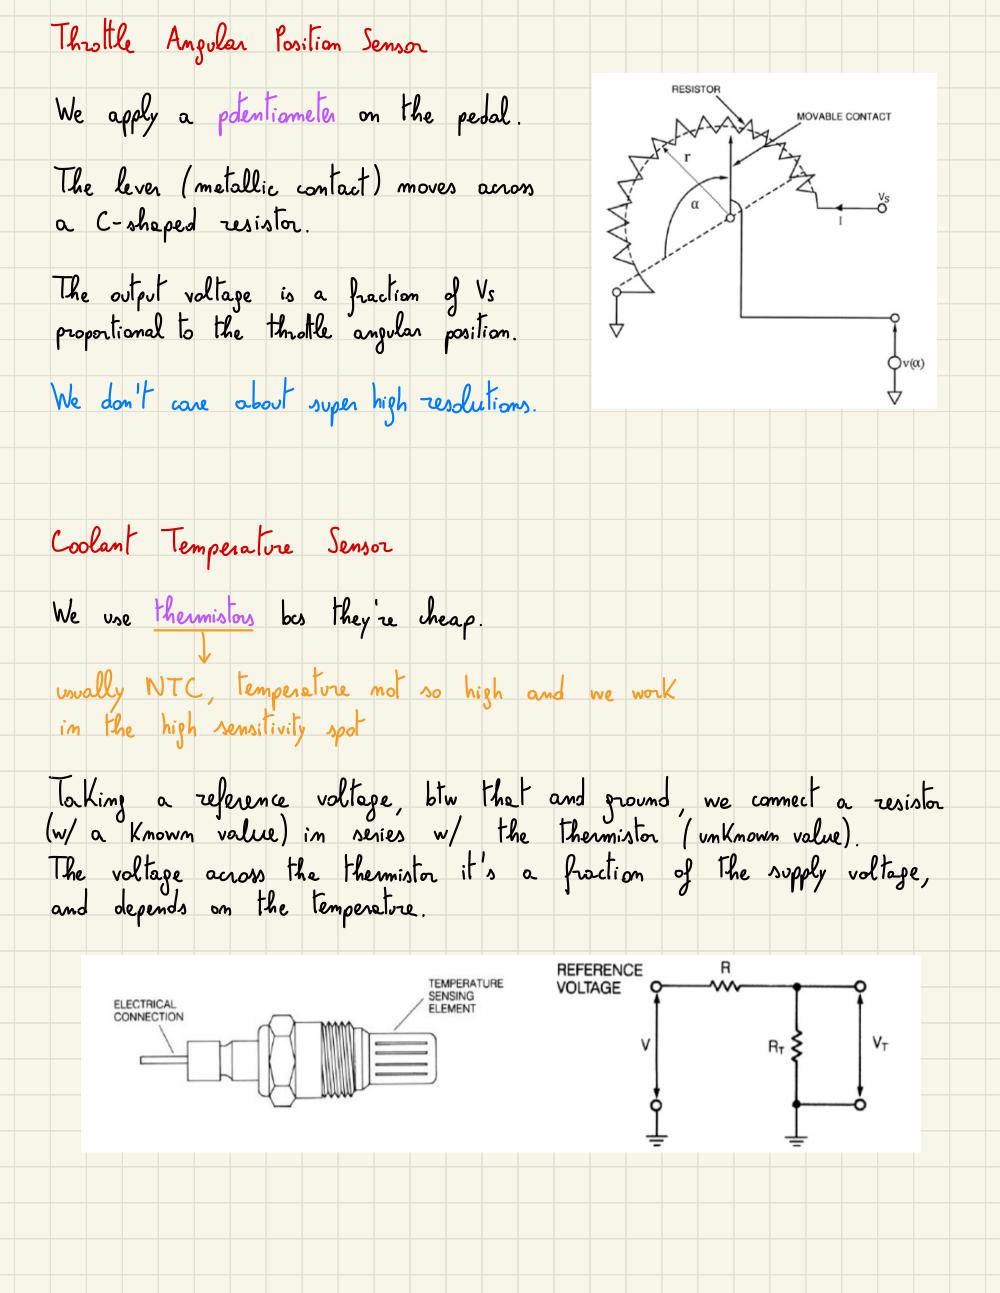 Throttle Angular Position Sensor
We apply a potentiometer on the pedal.
The lever (metallic contact) moves across
a C-shaped resistor.
The output voltage is a fraction of Vs
proportional to the throttle angular position.
We don't care about super high resolutions.
RESISTOR
MOVABLE CONTACT
r
α
VS
I
v(α)
Coolant Temperature Sensor
We use thermistors bcs they're cheap.
usually NTC, temperature not so high and we work
in the high sensitivity spot
Taking a reference voltage, btw that and ground, we connect a resistor
(w/ a known value) in series w/ the thermistor (unknown value).
The voltage across the thermistor it's a fraction of the supply voltage,
and depends on the temperature.
ELECTRICAL
CONNECTION
TEMPERATURE
SENSING
ELEMENT
REFERENCE
VOLTAGE
R
V
RT
VT